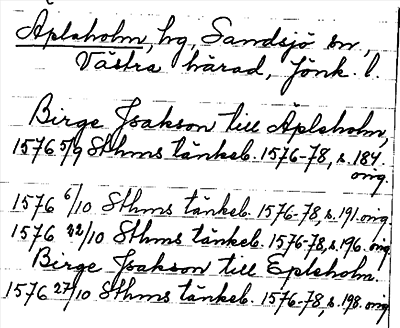 Äplaholm, hg, Sandsjö sn,
Västra härad, Jönk. l.
Birge Isakson till Äplaholm,
1576 5/9 Sthms tänkeb. 1576-78, s. 184.
orig.
1576 6/10 Sthms tänkeb. 1576-78, s. 191. orig.
1576 22/10 Sthms tänkeb. 1576-78, s. 196. orig.
Birge Isakson till Eplaholm.
1576 27/10 Sthms tänkeb. 1576-78, s. 198. orig.